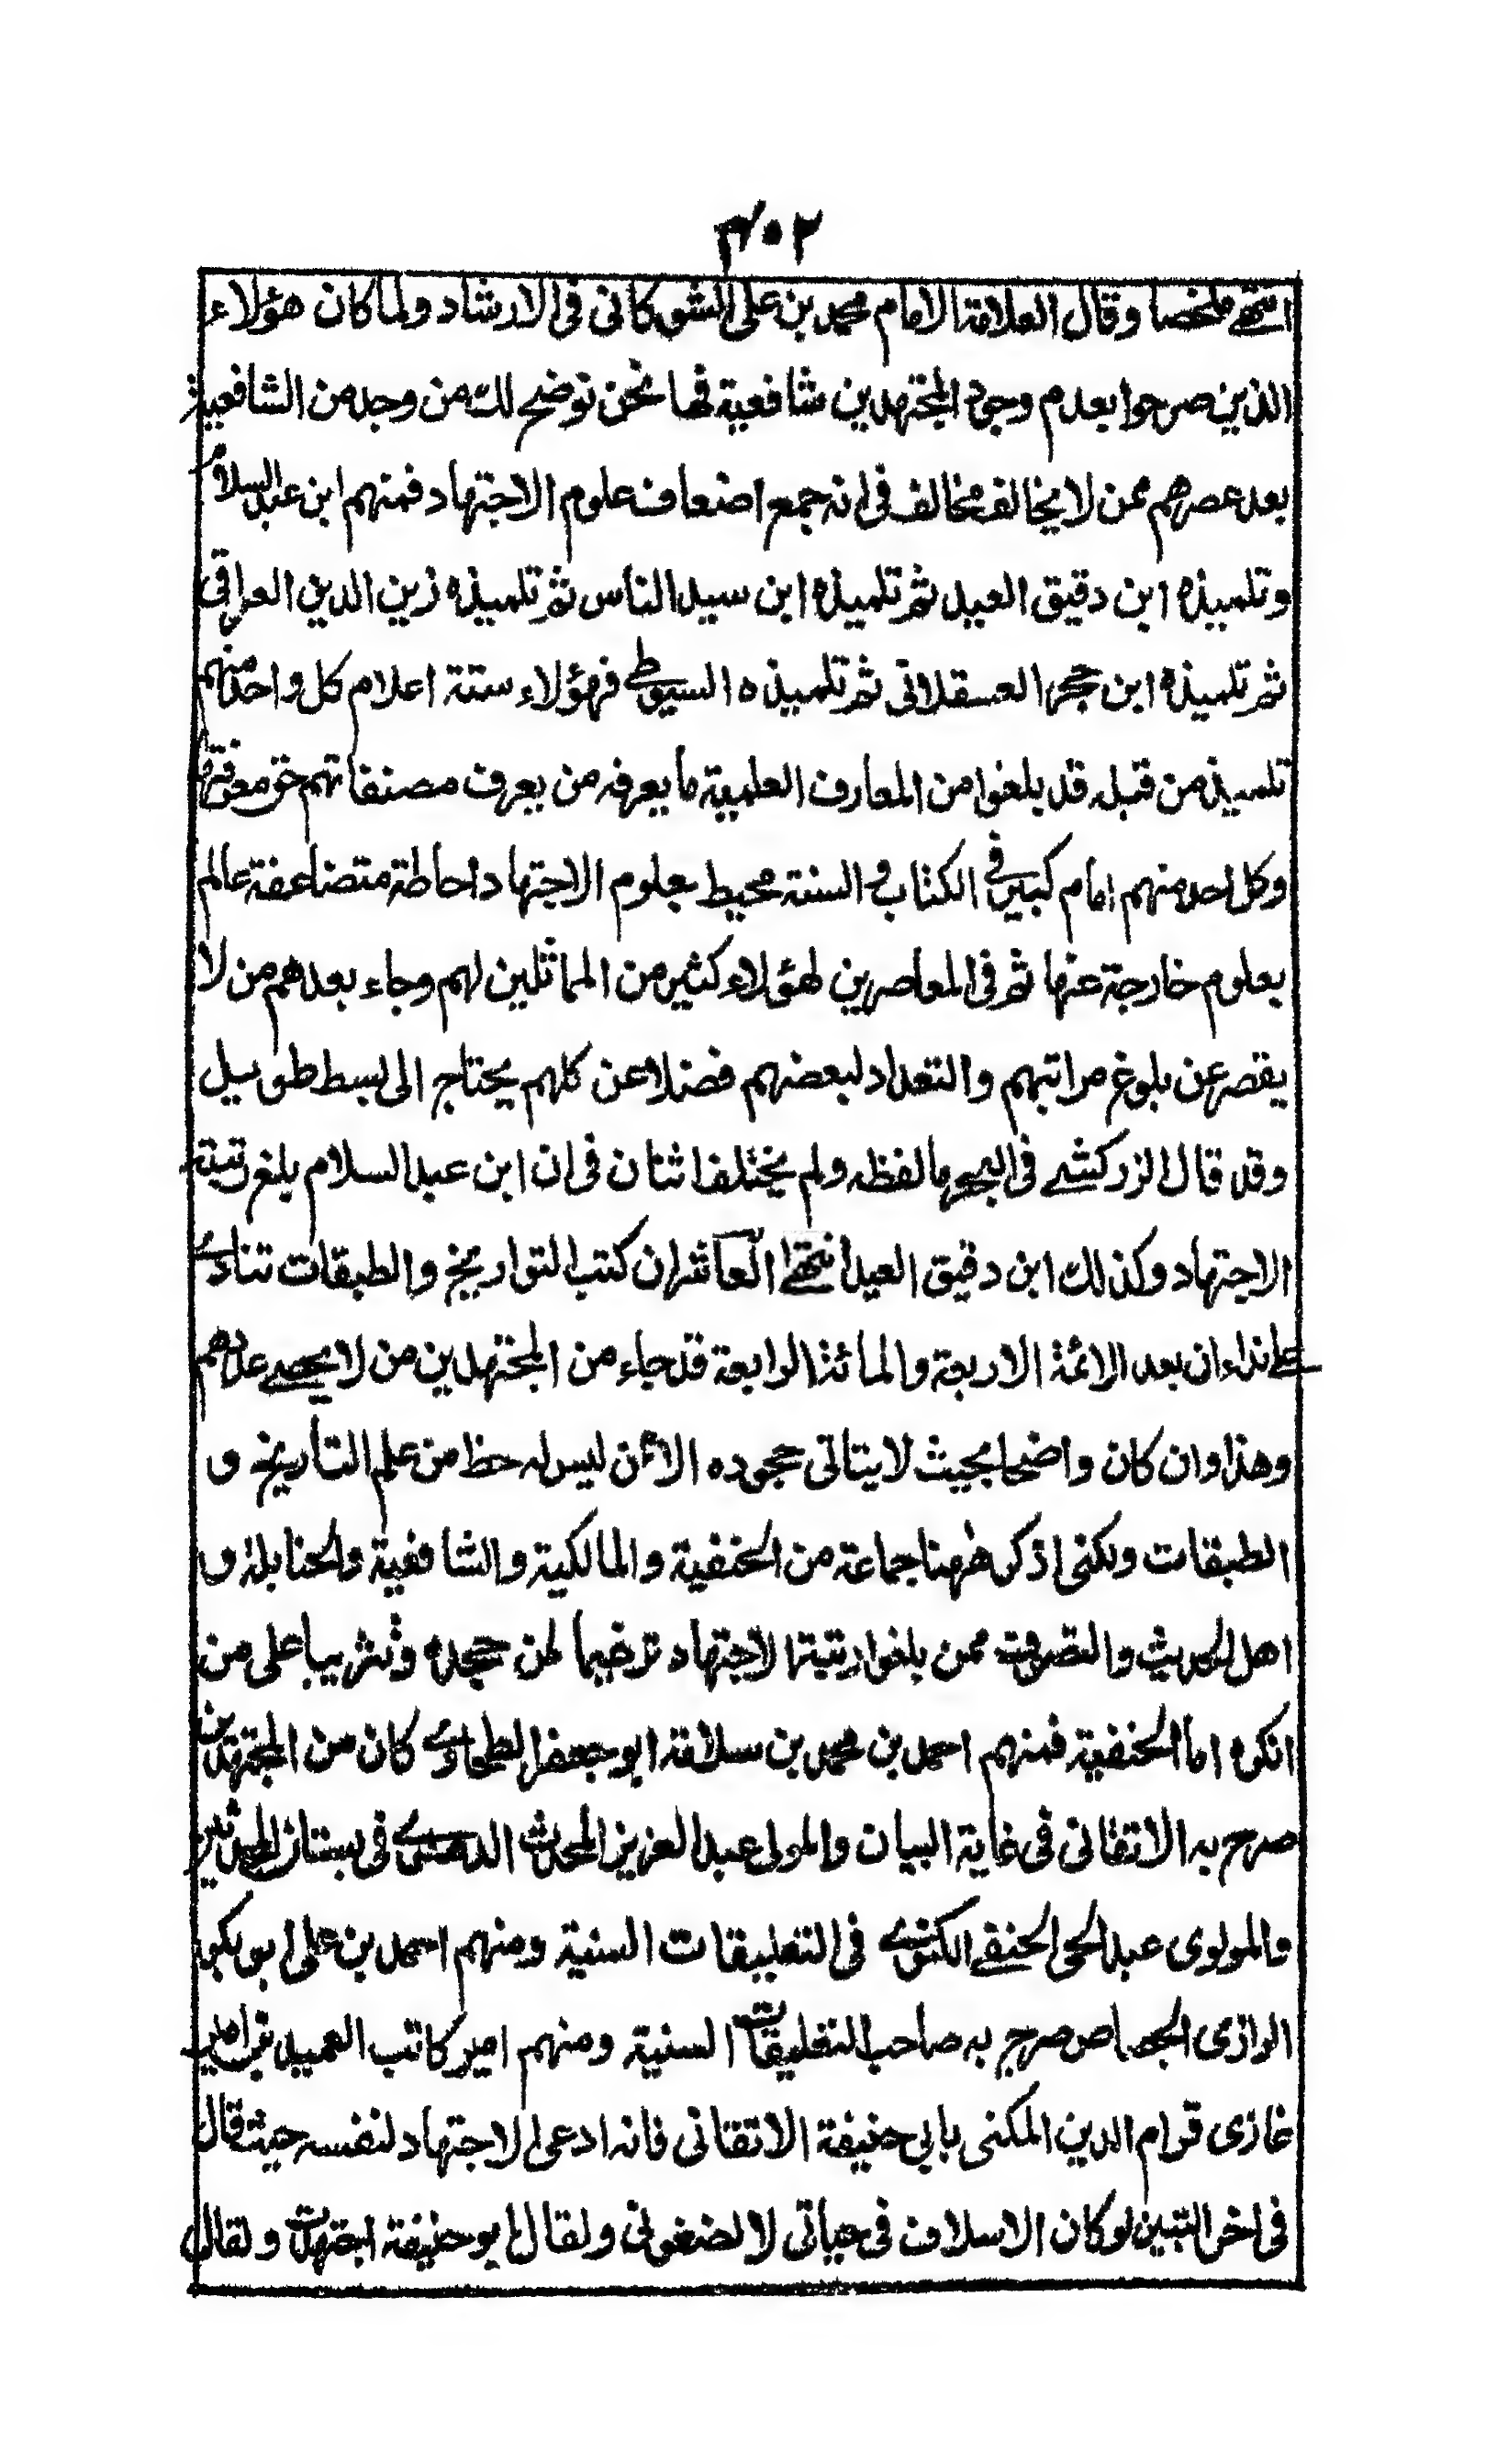 ۴۰۲
انتهے ملخصا وقال العلامة الامام محمد بن على الشوكانى فى الارشاد ولما كان هؤلاء
الذين صرحوا بعدم وجود المجتهدين شافعية فها نحن نوضح لك من وجد من الشافعية
بعد عصرهم ممن لا يخالف مخالف فى انه جمع اضعاف علوم الاجتهاد فمنهم ابن عبد السلام
وتلميذه ابن دقيق العيد ثم تلميذه ابن سيد الناس ثم تلميذه زين الدين العراقى
ثم تلميذه ابن حجر العسقلانى ثم تلميذه السيوطے فهؤلاء ستة اعلام كل واحد منهم
تلميذ من قبله قد بلغوا من المعارف العلمية ما يعرفه من يعرف مصنفاتهم حق معرفتها
وكل احد منهم امام كبير فى الكتاب و السنة محيط بعلوم الاجتهاد احاطة متضاعفة عالم
بعلوم خارجة عنها ثم فى المعاصرين لهؤلاء كثير من المماثلين لهم وجاء بعدهم من لا
يقصر عن بلوغ مراتبهم والتعداد لبعضهم فضلا عن كلهم يحتاج الى بسط طويل
وقد قال الزركشے فى البحر ما لفظه ولم يختلف اثنان فى ان ابن عبد السلام بلغ رتبة
الاجتهاد وكذلك ابن دقيق العيد انتهے العاشر ان كتب التواريخ والطبقات تنادے
علے نداء ان بعد الائمة الاربعة والمائة الرابعة قد جاء من المجتهدين من لا يحصے عددهم
وهذا وان كان واضحا بحيث لا يتاتى جحوده الا ممن ليس له حظ من علم التأريخ و
الطبقات ولكنى اذكر ههنا جماعة من الحنفية والمالكية والشافعية والحنابلة و
اهل الحديث والتصوف ممن بلغوا رتبة الاجتهاد ترغيما لمن جحده وتثريبا على من
انكره اما الحنفية فمنهم احمد بن محمد بن سلامة ابو جعفر الطحاوے كان من المجتهدين
صرح به الاتقانى فى غاية البيان والمولى عبد العزيز المحدث الدهلوے فى بستان المحدثين
والمولوى عبد الحى الحنفے الكنوے فى التعليقات السنية ومنهم احمد بن على ابو بكر
الرازى الجصاص صرح به صاحب التعليقات السنية ومنهم امير كاتب العميد بن امير
غازى قوام الدين المكنى بابي حنيفة الاتقانى فانه ادعى الاجتهاد لنفسه حيث قال
فى اخر التبيين لو كان الاسلاف فى حياتى لانصفونى ولقال ابو حنيفة اجتهدت ولقال